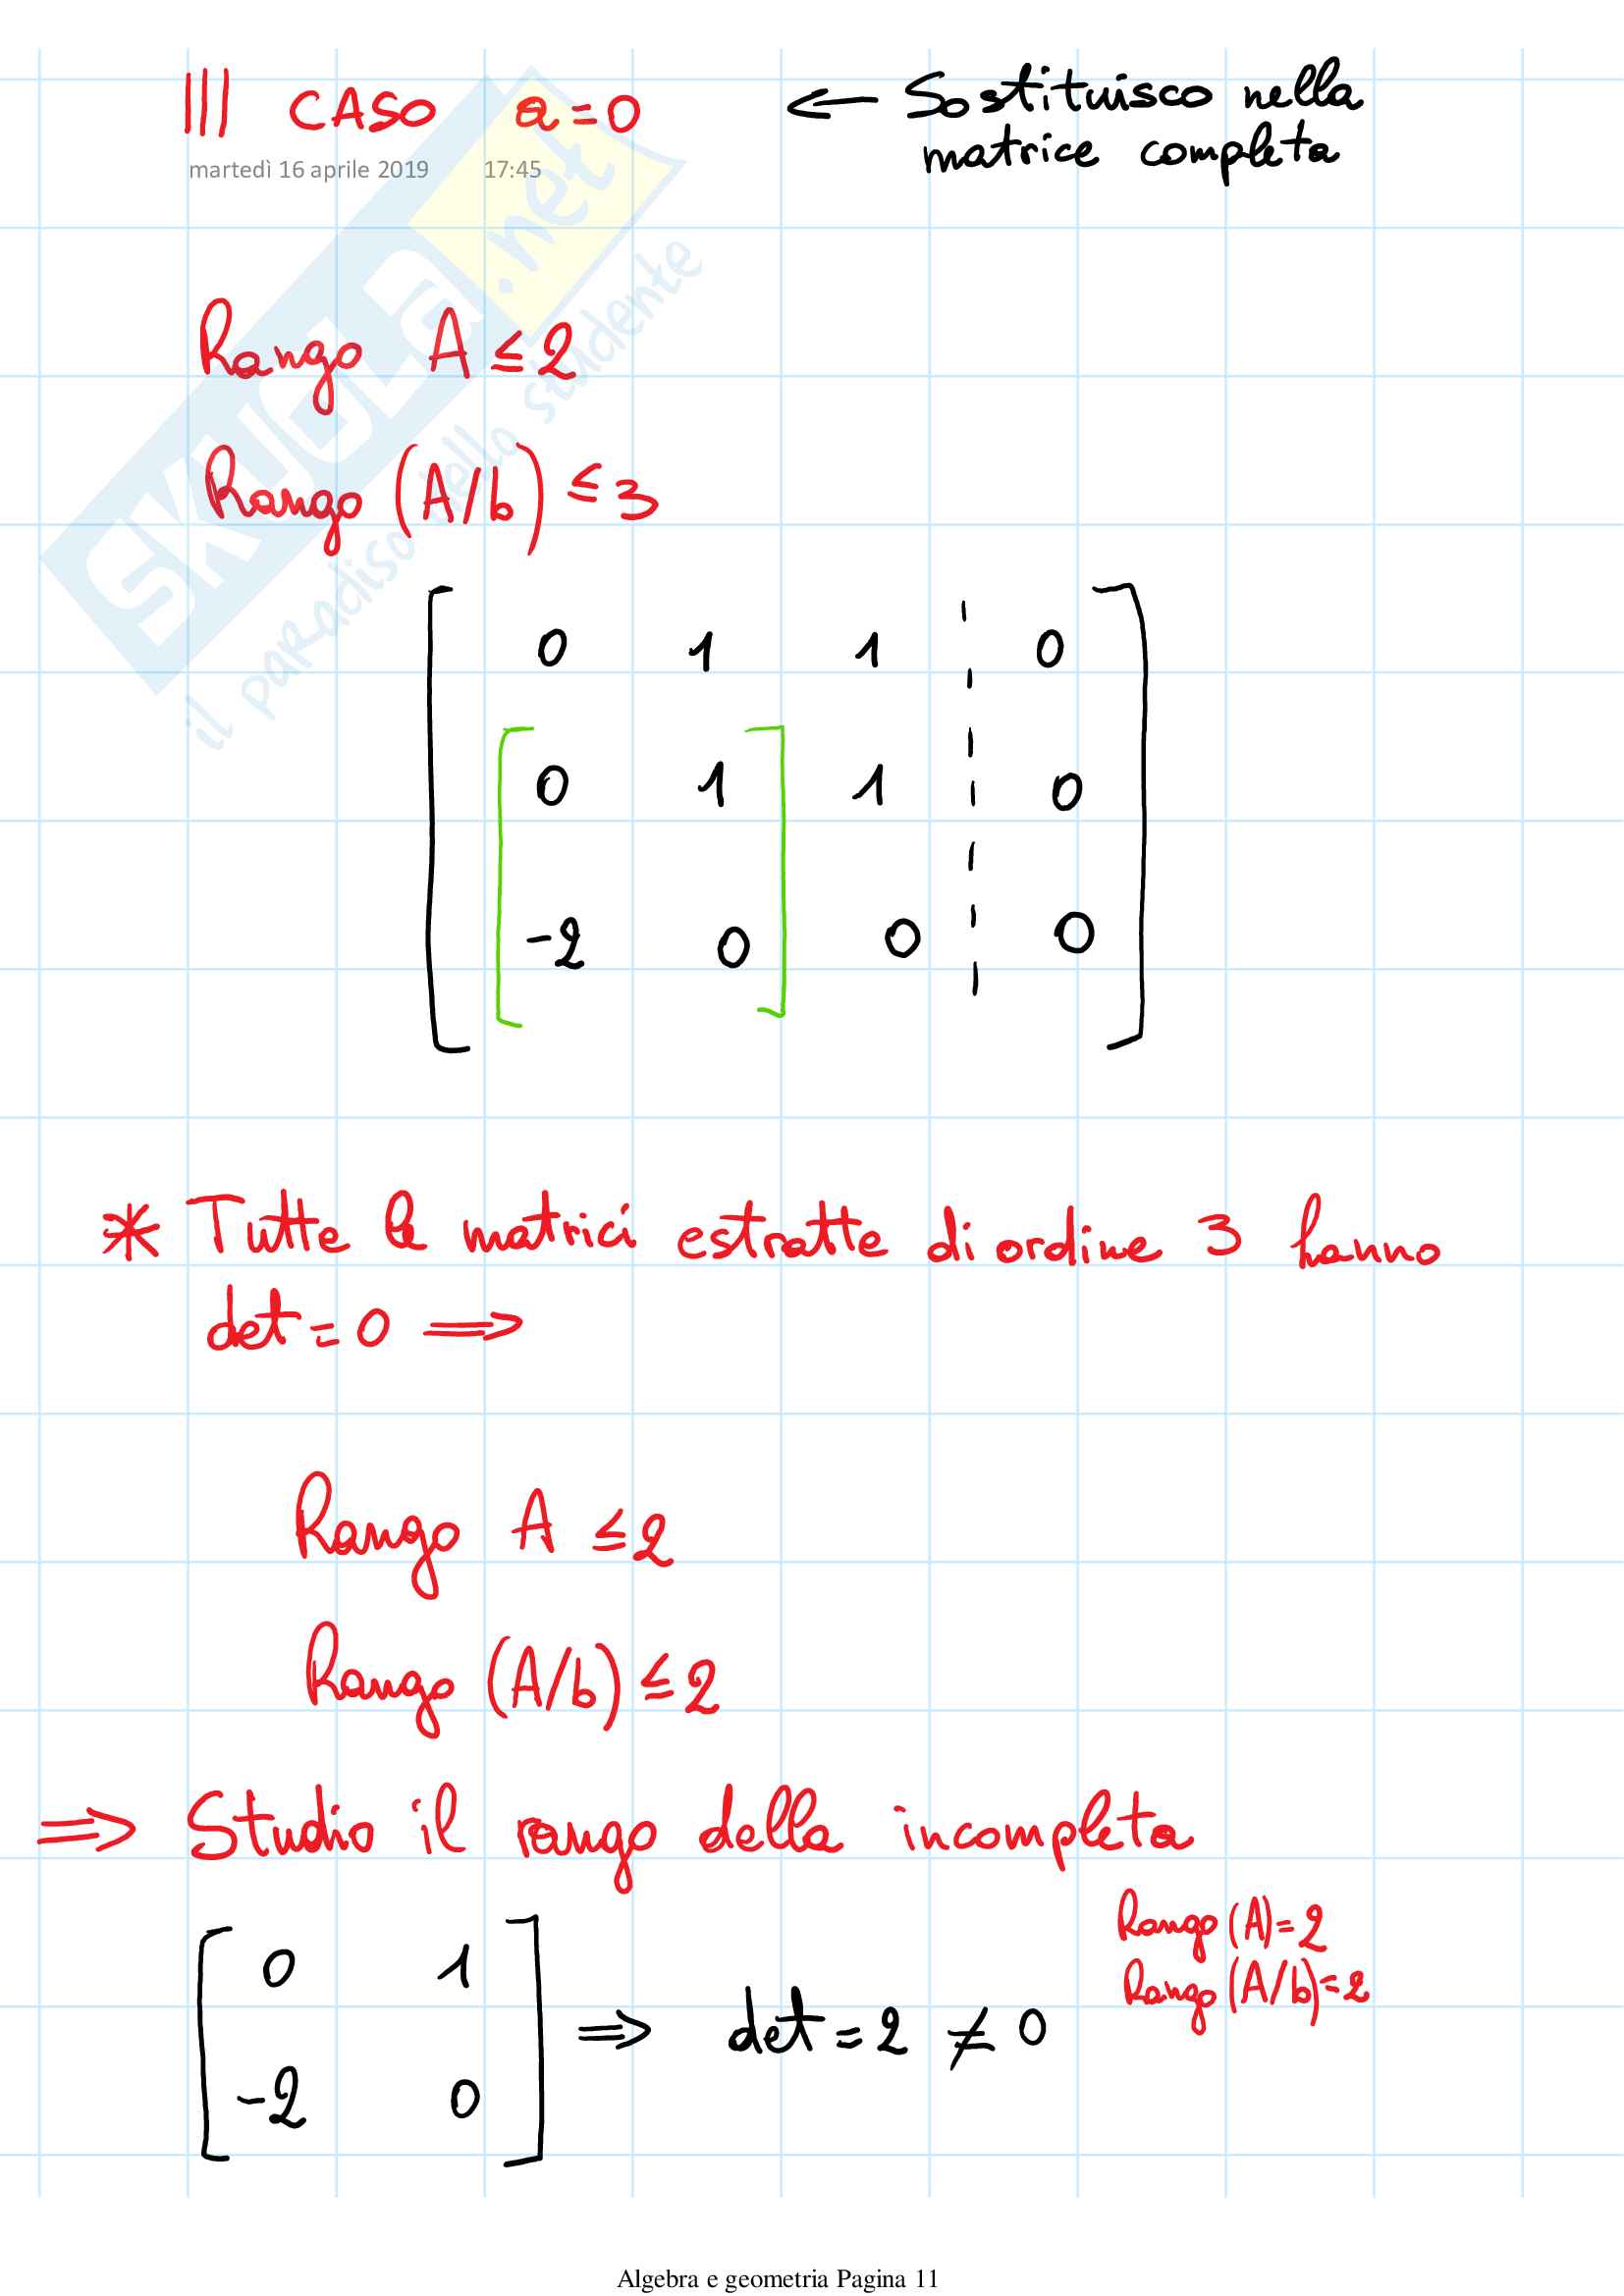 III CASO a=0 ← Sostituisco nella
matrice completa
martedì 16 aprile 2019 17:45
SKUOLA.net
il paradiso dello studente
Rango A ≤2
Rango (A/b) ≤3
0 1 1 ¦ 0
0 1 1 ¦ 0
-2 0 0 ¦ 0
* Tutte le matrici estratte di ordine 3 hanno
det=0 ⟹
Rango A ≤2
Rango (A/b) ≤2
⟹ Studio il rango della incompleta
Rango (A)=2
Rango (A/b)=2
0 1
⟹ det=2 ≠0
-2 0
Algebra e geometria Pagina 11